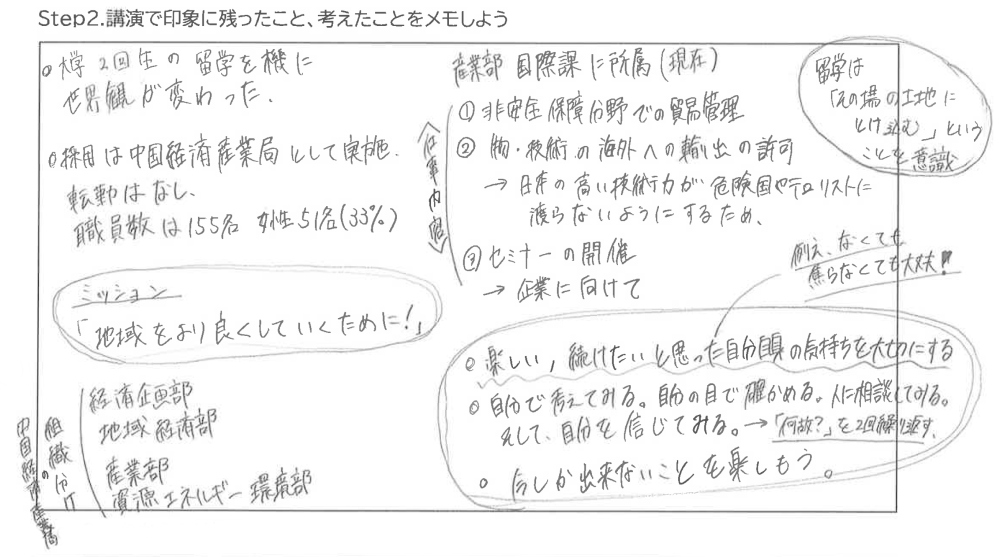 Step2.講演で印象に残ったこと、考えたことをメモしよう
○大学2回生の留学を機に
世界観が変わった.
○採用は中国経済産業局として実施.
転勤はなし.
職員数は155名 女性51名(33%)
ミッション
「地域をより良くしていくために!」
中国経済産業局の
組織分け
経済企画部
地域経済部
産業部
資源エネルギー環境部
産業部 国際課に所属(現在)
〈仕事内容〉
①非安全保障分野での貿易管理
② 物・技術の海外への輸出の許可
→ 日本の高い技術力が危険国やテロリストに
渡らないようにするため、
③ セミナーの開催
→ 企業に向けて
留学は
「その場の土地に
とけ込む」という
ことを意識
例え、なくても
焦らなくても大丈夫!
○ 楽しい,続けたいと思った自分自身の気持ちを大切にする
○ 自分で考えてみる。自分の目で確かめる。人に相談してみる。
そして、自分を信じてみる。→「何故?」を2回繰り返す.
○ 今しか出来ないことを楽しもう。